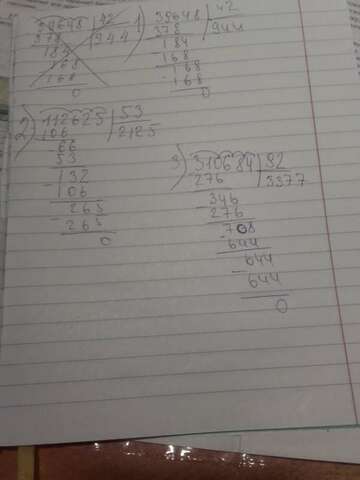 39648 | 42
378 | 944
184
168
168
168
0
1) 39648 | 42
378 | 944
- 184
168
- 168
168
0
2) 112625 | 53
106 | 2125
- 66
53
- 132
106
- 265
265
0
3) 310684 | 92
276 | 3377
- 346
276
- 708
644
- 644
644
0